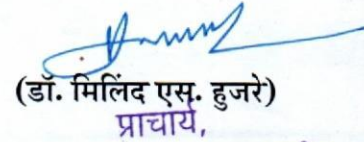 (डॉ. मिलिंद एस. हुजरे)
प्राचार्य,